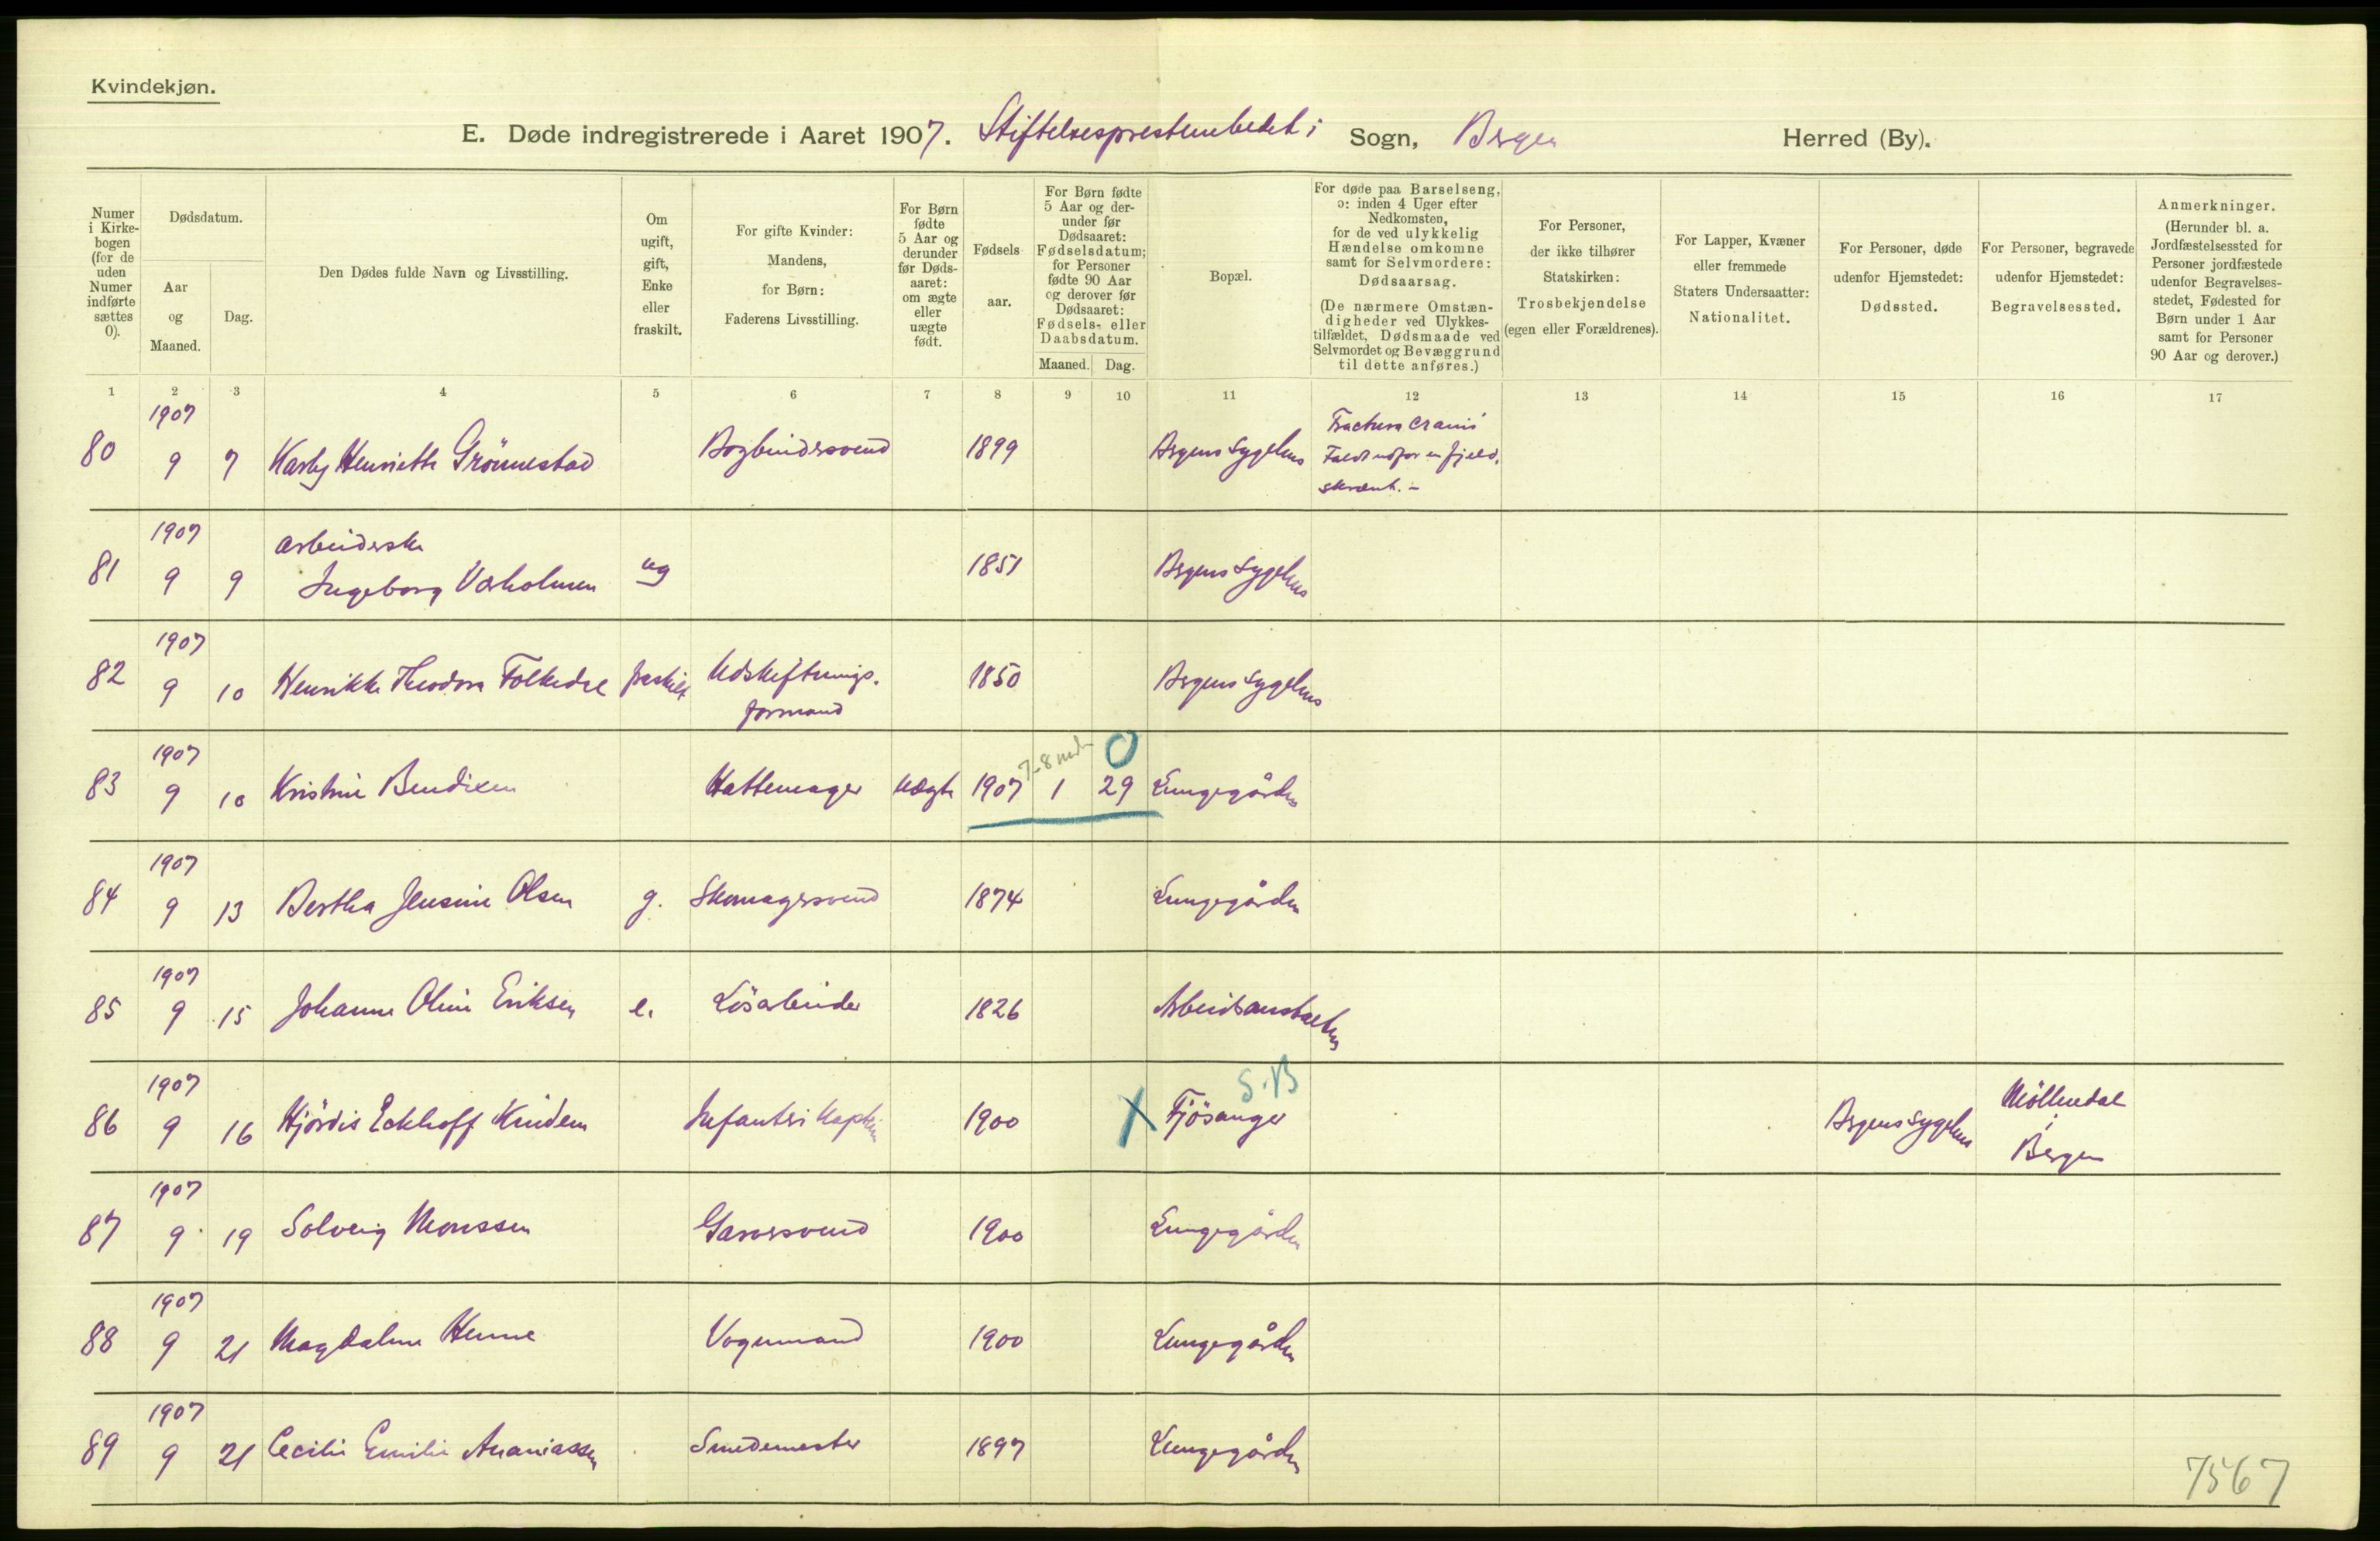 Kvindekjøn.
E. Døde indregistrerede i Aaret 1907. Stiftelsesprestembedet i Sogn, Bergen Herred (By).
Numer i Kirkebogen (for de uden Numer indførte sættes 0).
Dødsdatum.
Aar og Maaned.
Dag.
Den Dødes fulde Navn og Livsstilling.
Om ugift, gift, Enke eller fraskilt.
For gifte Kvinder: Mandens, for Børn: Faderens Livsstilling.
For Børn fødte 5 Aar og derunder før Dødsaaret: om ægte eller uægte født.
Fødsels aar.
For Børn fødte 5 Aar og derunder før Dødsaaret: Fødselsdatum; for Personer fødte 90 Aar og derover før Dødsaaret: Fødsels- eller Daabsdatum.
Maaned. Dag.
Bopæl.
For døde paa Barselseng, ɔ: inden 4 Uger efter Nedkomsten, for de ved ulykkelig Hændelse omkomne samt for Selvmordere: Dødsaarsag. (De nærmere Omstændigheder ved Ulykkestilfældet, Dødsmaade ved Selvmordet og Bevæggrund til dette anføres.)
For Personer, der ikke tilhører Statskirken: Trosbekjendelse (egen eller Forældrenes).
For Lapper, Kvæner eller fremmede Staters Undersaatter: Nationalitet.
For Personer, døde udenfor Hjemstedet: Dødssted.
For Personer, begravede udenfor Hjemstedet: Begravelsessted.
Anmerkninger. (Herunder bl. a. Jordfæstelsessted for Personer jordfæstede udenfor Begravelsesstedet, Fødested for Børn under 1 Aar samt for Personer 90 Aar og derover.)
1 2 3 4 5 6 7 8 9 10 11 12 13 14 15 16 17
1907
80 9 7 Karly Henriette Grönnestad Bogbindersvend 1899 Bergens Sygehus Fractura cranii
Faldt udfor en fjeld,
skrænt. -
1907
81 9 9 Arbeiderske
Ingeborg Varholmen ug 1851 Bergens Sygehus
1907
82 9 10 Henrikke Theodora Folkedal fraskilt Udskiftnings.
formand 1850 Bergens Sygehus
1907
83 9 10 Kristine Bendixen Hattemager uægte 1907 7-8 mdr 1 29 0 Lungegården
1907
84 9 13 Bertha Jensine Olsen g. Skomagersvend 1874 Lungegården
1907
85 9 15 Johanne Oline Eriksen e. Lösarbeider 1826 Arbeidsanstalten
1907
86 9 16 Hjördis Eckhoff Kindem Infanteri Kaptein 1900 X S.B Fjösanger Bergens Sygehus Möllendal
i
Bergen
1907
87 9 19 Solveig Monssen Garversvend 1900 Lungegården
1907
88 9 21 Magdalene Henne Vognmand 1900 Lungegården
1907
89 9 21 Cecilie Emilie Ananiassen Smedemester 1897 Lungegården
7567